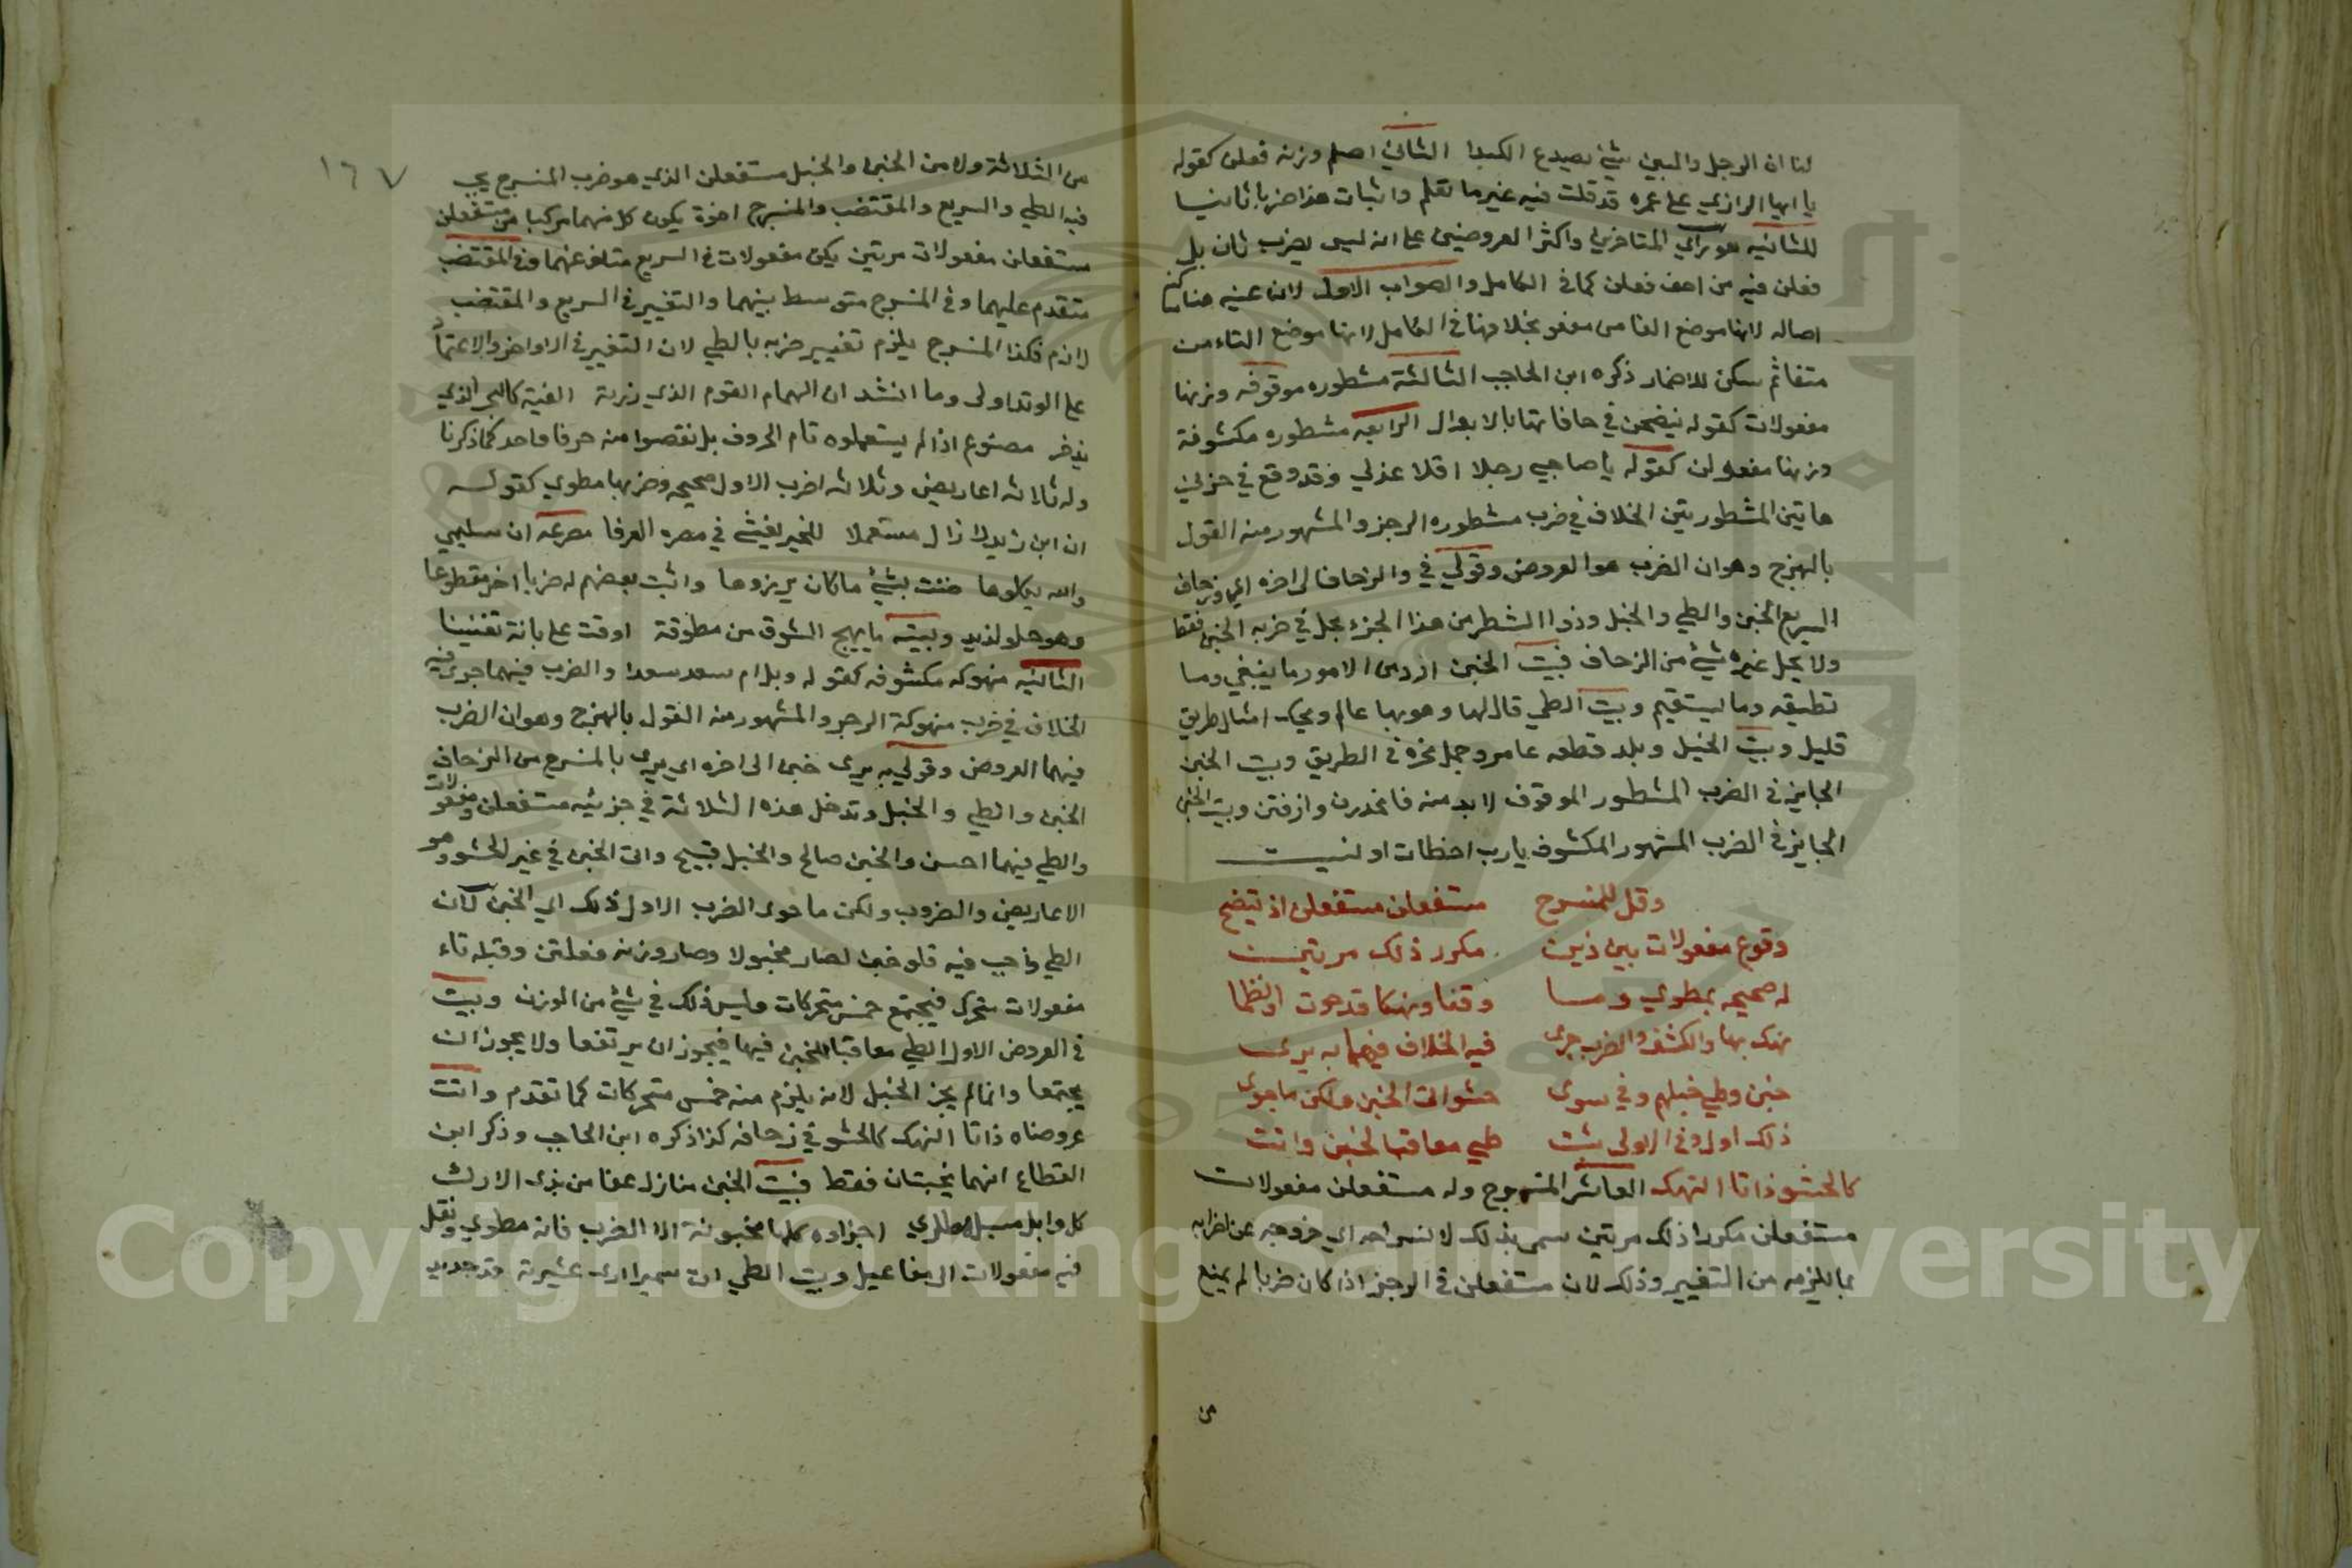 لنا ان الرجل والبين شئ يصدع الكبدا الثاني اصلم وزنه فعلن كقوله
يا ايها الزاري على عمر قد قلت فيه غير ما تعلم واثبات هذا ضربا ثانيا
للثانيه هو راي المتاخرين واكثر العروضيين على انه ليس بضرب ثان بل
فعلن فيه من احف فعلن كما في الكامل والصواب الاول لان عينه هنا
اصاله لانها موضع الفا من مفعو بخلافها في الكامل لانها موضع التاء من
متفا ثم سكن للاضمار ذكره ابن الحاجب الثالثة مشطوره موقوفه وزنها
مفعولات كقوله ينضحن في حافاتها بالابوال الرابعه مشطوره مكشوفة
وزنها مفعولن كقوله يا صاحبي رحلا اقلا عذلي وقد وقع في جزئي
هاتين المشطورتين الخلاف في ضرب مشطوره الرجز والمشهور منه القول
بالهزج وهو ان الضرب هو العروض وقولي في والزحاف الى اخره اي وزحاف
السريع الخبن والطي والخبل وذوا الشطر من هذا الجزء يحل في ضربه الخبن فقط
ولا يحل غيره شئ من الزحاف فبيت الخبن ارد من الامور ما ينبغي وما
تطيقه وما يستقيم وبيت الطي قال لها وهو بها عالم ويحك امثال طريف
قليل وبيت الخبل وبلد قطعه عامر وجمل نحره في الطريق وبيت الخبن
الجايز في الضرب المشطور الموقوف لا بد منه فانحدرن وارقين وبيت الخبن
الجايز في الضرب المشهور المكشوف يارب اخطات او نسيت
وقل للمنسرح مستفعلن مستفعلن اذ تيضح
وقوع مفعولات بين ذين مكرر ذلك مرتين
له صحيحه بمطوي وما وقفا ونهكا قد حوت او نظما
نهك بها والكشف والضرب جرى فيه الخلاف فيهما به يرى
خبن وطي خبلهم وفي سوى حشو اتى الخبن ولكن ما حوى
ذلك اول وفي الاولى ثبت طي معاقبا لخبن واتت
كالحشو ذاتا النهك العاشر المنسرح وله مستفعلن مفعولات
مستفعلن مكررا ذلك مرتين سمي بذلك لانسراحه اي خروجه عن اضرابه
بما يلزمه من التغيير وذلك لان مستفعلن في الرجز اذا كان ضربا لم يمنع
من
١٦٧
من الثلاثة ولا من الخبن والخبل مستفعلن الذي هو ضرب المنسرح يجب
فيه الطي والسريع والمقتضب والمنسرح اخوة يكون كل منهما مركبا من مستفعلن
مستفعلن مفعولات مرتين لكن مفعولات في السريع متاخر عنهما وفي المقتضب
متقدم عليهما وفي المنسرح متوسط بينهما والتغيير في السريع والمقتضب
لازم فكذا المنسرح يلزم تغيير ضربه بالطي لان التغيير في الاواخر والاعتماد
على الوتد اولى وما انشد ان الهمام القوم الذي زرته الفيته كالبحر الذي
يزخر مصنوع اذ لم يستعملوه تام الحروف بل نقصوا منه حرفا واحد كما ذكرنا
وله ثلاثه اعاريض وثلاثه اضرب الاول صحيحه وضربها مطوي كقوله
ان ابن زيد لا زال مستعملا للخير يفشي في مصره العرفا مصرعه ان سليمى
والله يكلوها ضنت بشئ ما كان يرزوها واثبت بعضهم له ضربا اخر مقطوعا
وهو حلو لذيد وبيته ما يهيج الشوق من مطوقة اوفت على بانة تغنينا
الثانيه منهوكه مكشوفه كقوله ويل ام سعد سعدا والضرب فيهما جرى فيه
الخلاف في ضرب منهوكة الرجز والمشهور منه القول بالهزج وهو ان الضرب
فيهما العروض وقولي به يرى خبن الى اخره اي يرى بالمنسرح من الزحاف
الخبن والطي والخبل وتدخل هذه الثلاثة في جزئيه مستفعلن ومفعولات
والطي فيهما احسن والخبن صالح والخبل قبيح واتى الخبن في غير الحشو وهو
الاعاريض والضروب ولكن ما حوى الضرب الاول ذلك اي الخبن لان
الطي واجب فيه فلو خبن لصار مخبولا وصار وزنه فعلتن وقبله تاء
مفعولات متحرك فيجتمع خمس متحركات وليس ذلك في شئ من الوزن وبيت
في العروض الاول الطي معاقبا للخبن فيها فيجوز ان يرتفعا ولا يجوز ان
يجتمعا وانما لم يجز الخبل لانه يلزم منه خمس متحركات كما تقدم واتت
عروضاه ذاتا النهك كالحشو في زحافه كذا ذكره ابن الحاجب وذكر ابن
القطاع انهما يخبنان فقط فبيت الخبن منازل عفا من بذي الاراك
كل وابل مسبل هطل اجزاوه كلها مخبونة الا الضرب فانه مطوي ونقل
فيه مفعولات الى مفاعيل وبيت الطي ان سميرا ارى عشيرته قد حدبو